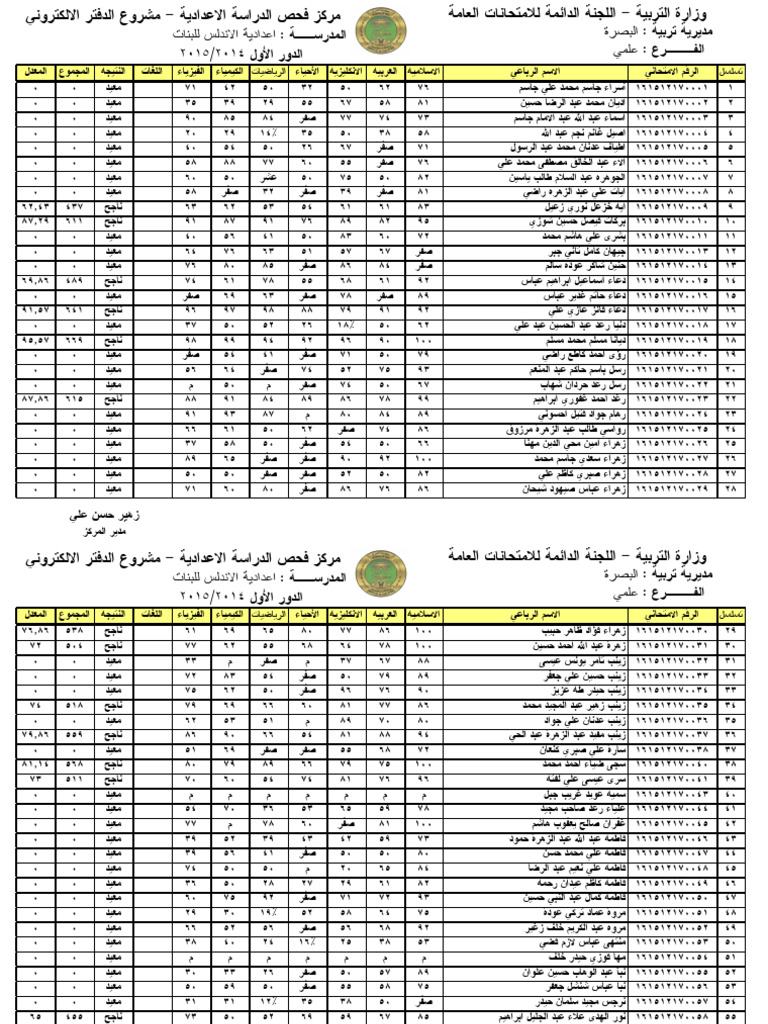 وزارة التربية – اللجنة الدائمة للامتحانات العامة مركز فحص الدراسة الاعدادية – مشروع الدفتر الالكتروني
مديرية تربية : البصرة المدرســـة : اعدادية الاندلس للبنات
الفــــرع : علمي الدور الأول ٢٠١٥/٢٠١٤
تسلسل الرقم الامتحاني الاسم الرباعي الاسلامية العربيه الانكليزيه الأحياء الرياضيات الكيمياء الفيزياء اللغات النتيجه المجموع المعدل
١ ١٦١٥١٢١٧٠٠٠١ اسراء جاسم محمد علي جاسم ٧٦ ٦٢ ٥٠ ٣٢ ٥٠ ٤٢ ٧١ معيد ٠ ٠
٢ ١٦١٥١٢١٧٠٠٠٢ اديان محمد عبد الرضا حسين ٨١ ٥٨ ٦٧ ٥٥ ٢٩ ٣٩ ٣٥ معيد ٠ ٠
٣ ١٦١٥١٢١٧٠٠٠٣ اسماء عبد الله عبد الامام جاسم ٧٣ ٧٤ ٧٧ صفر ٨٤ ٨٥ ٩٠ معيد ٠ ٠
٤ ١٦١٥١٢١٧٠٠٠٤ اصيل غانم نجم عبد الله ٥٨ ٣٨ ٥٠ ٣٥ ١٤٪ ٢٩ ٢٠ معيد ٠ ٠
٥ ١٦١٥١٢١٧٠٠٠٥ اطياف عدنان محمد عبد الرسول ٧١ صفر ٦٧ ٢٦ ٥٠ ٥٤ ٤٠ معيد ٠ ٠
٦ ١٦١٥١٢١٧٠٠٠٦ الاء عبد الخالق مصطفى محمد علي ٧٦ صفر ٥٥ ٦٠ ٧٧ ٨٨ ٥٨ معيد ٠ ٠
٧ ١٦١٥١٢١٧٠٠٠٧ الجوهره عبد السلام طالب ياسين ٨٢ ٥٠ ٧٥ ٥٠ عشر ٥٠ ٦٠ معيد ٠ ٠
٨ ١٦١٥١٢١٧٠٠٠٨ ايات علي عبد الزهره راضي ٨١ صفر ٣٩ صفر ٣٢ صفر ٥٨ معيد ٠ ٠
٩ ١٦١٥١٢١٧٠٠٠٩ ايه خزعل نوري زعيل ٨٣ ٦١ ٦١ ٥٤ ٥٣ ٦٢ ٦٣ ناجح ٤٣٧ ٦٢,٤٣
١٠ ١٦١٥١٢١٧٠٠١٠ بركات فيصل حسين شوزي ٩٥ ٨٢ ٨٩ ٧٦ ٩١ ٨٧ ٩١ ناجح ٦١١ ٨٧,٢٩
١١ ١٦١٥١٢١٧٠٠١١ بشرى علي هاشم محمد ٧٢ ٦٠ ٨٣ ٥٠ ٤١ ٥٦ ٤٠ معيد ٠ ٠
١٢ ١٦١٥١٢١٧٠٠١٣ جيهان كامل ثاني جبر صفر ٦٧ ٥٧ ٥١ ٦٣ ٧٦ ٦٤ معيد ٠ ٠
١٣ ١٦١٥١٢١٧٠٠١٤ حنين شاكر عوده سالم صفر ٨٤ ٨٦ صفر ٨٥ ٨٠ ٧٦ معيد ٠ ٠
١٤ ١٦١٥١٢١٧٠٠١٥ دعاء اسماعيل ابراهيم عباس ٩٢ ٦١ ٦٨ ٥٥ ٧٨ ٦١ ٧٤ ناجح ٤٨٩ ٦٩,٨٦
١٥ ١٦١٥١٢١٧٠٠١٦ دعاء حاتم غدير عباس ٨٩ صفر ٧٨ صفر ٦٣ ٦٩ صفر معيد ٠ ٠
١٦ ١٦١٥١٢١٧٠٠١٧ دعاء فائز غازي علي ٩٢ ٩١ ٧٩ ٨٨ ٩٨ ٩٧ ٩٦ ناجح ٦٤١ ٩١,٥٧
١٧ ١٦١٥١٢١٧٠٠١٨ دنيا رعد عبد الحسين عبد علي ٦٢ ٥٠ ١٨٪ ٢٦ ٥٢ ٥٠ ٣٧ معيد ٠ ٠
١٨ ١٦١٥١٢١٧٠٠١٩ ديانا مسلم محمد مسلم ١٠٠ ٩٠ ٩٦ ٩٢ ٩٤ ٩٩ ٩٨ ناجح ٦٦٩ ٩٥,٥٧
١٩ ١٦١٥١٢١٧٠٠٢٠ رؤى احمد كاطع راضي ٧٩ ٥٠ ٧١ صفر ٤١ ٥٤ صفر معيد ٠ ٠
٢٠ ١٦١٥١٢١٧٠٠٢١ رسل باسم حاكم عبد المنعم ٩٣ ٧٥ ٥٢ ٧٤ صفر ٦٤ ٥٦ معيد ٠ ٠
٢١ ١٦١٥١٢١٧٠٠٢٢ رسل رعد حردان شهاب ٦٧ ٥٠ ٧٤ صفر م ٥٠ م معيد ٠ ٠
٢٢ ١٦١٥١٢١٧٠٠٢٣ رغد احمد غفوري ابراهيم ٩٩ ٧٨ ٨٦ ٨٩ ٨٤ ٩١ ٨٨ ناجح ٦١٥ ٨٧,٨٦
٢٣ ١٦١٥١٢١٧٠٠٢٤ رهام جواد قنبل احسوني ٨٩ ٨٤ ٨٠ م ٨٧ ٩٣ ٩١ معيد ٠ ٠
٢٤ ١٦١٥١٢١٧٠٠٢٥ رواسي طالب عبد الزهره مرزوق ٨٦ ٧٤ صفر ٦٢ ٥٠ ٦١ ٦٦ معيد ٠ ٠
٢٥ ١٦١٥١٢١٧٠٠٢٦ زهراء امين محي الدين مهنا ٦٦ ٥٠ ٥٤ صفر ٥٠ ٥٨ ٣٧ معيد ٠ ٠
٢٦ ١٦١٥١٢١٧٠٠٢٧ زهراء سعدي جاسم محمد ١٠٠ ٩٢ ٩٠ صفر صفر ٦٥ ٨٩ معيد ٠ ٠
٢٧ ١٦١٥١٢١٧٠٠٢٨ زهراء صبري كاظم علي ٨٢ ٥٠ ٥٢ صفر صفر ٥٠ ٥٠ معيد ٠ ٠
٢٨ ١٦١٥١٢١٧٠٠٢٩ زهراء عباس صيهود شيحان ٨٦ ٧٦ ٨٦ صفر ٨٠ ٦٠ ٧١ معيد ٠ ٠
زهير حسن علي
مدير المركز
وزارة التربية – اللجنة الدائمة للامتحانات العامة مركز فحص الدراسة الاعدادية – مشروع الدفتر الالكتروني
مديرية تربية : البصرة المدرســـة : اعدادية الاندلس للبنات
الفــــرع : علمي الدور الأول ٢٠١٥/٢٠١٤
تسلسل الرقم الامتحاني الاسم الرباعي الاسلامية العربيه الانكليزيه الأحياء الرياضيات الكيمياء الفيزياء اللغات النتيجه المجموع المعدل
٢٩ ١٦١٥١٢١٧٠٠٣٠ زهراء فؤاد ظاهر حبيب ١٠٠ ٨٦ ٧٧ ٨٠ ٦٥ ٦٩ ٦١ ناجح ٥٣٨ ٧٦,٨٦
٣٠ ١٦١٥١٢١٧٠٠٣١ زهره عبد الله احمد حسين ١٠٠ ٧٨ ٦٤ ٦٨ ٥٥ ٦٢ ٧٧ ناجح ٥٠٤ ٧٢
٣١ ١٦١٥١٢١٧٠٠٣٢ زينب ثامر يونس عيسى ٨٨ ٦٧ ٣٧ م صفر م ٣٣ معيد ٠ ٠
٣٢ ١٦١٥١٢١٧٠٠٣٣ زينب حسين علي جعفر ٨٩ ٧٩ ٥٠ صفر ٥٤ ٨٣ ٧٢ معيد ٠ ٠
٣٣ ١٦١٥١٢١٧٠٠٣٤ زينب حيدر طه عزيز ٩٠ ٧٦ ٩٦ صفر ٥٠ ٦٢ ٧٥ معيد ٠ ٠
٣٤ ١٦١٥١٢١٧٠٠٣٥ زينب زهير عبد المجيد محمد ٨٦ ٧٧ ٨١ ٦٠ ٦٦ ٦٩ ٧٩ ناجح ٥١٨ ٧٤
٣٥ ١٦١٥١٢١٧٠٠٣٦ زينب عدنان علي جواد ٨٠ ٧٠ ٨٩ م ٥١ ٥٣ ٦٢ معيد ٠ ٠
٣٦ ١٦١٥١٢١٧٠٠٣٧ زينب مفيد عبد الزهره عبد الحي ٩٤ ٨٨ ٨١ ٥٠ ٧٠ ٩٠ ٨٦ ناجح ٥٥٩ ٧٩,٨٦
٣٧ ١٦١٥١٢١٧٠٠٣٨ ساره علي صبري كنعان ٧٢ ٦٨ ٥٥ صفر صفر ٦٩ ٥١ معيد ٠ ٠
٣٨ ١٦١٥١٢١٧٠٠٤٠ سجى ضياء احمد محمد ١٠٠ ٧٥ ٧٩ ٦٦ ٨٩ ٧٩ ٨٠ ناجح ٥٦٨ ٨١,١٤
٣٩ ١٦١٥١٢١٧٠٠٤١ سرى عيسى علي لفته ٩٦ ٧٦ ٨١ ٧٤ ٥٤ ٦٠ ٧٠ ناجح ٥١١ ٧٣
٤٠ ١٦١٥١٢١٧٠٠٤٣ سميه عويد غريب جبل م م م م م م م معيد ٠ ٠
٤١ ١٦١٥١٢١٧٠٠٤٤ علياء رعد صاحب مجيد ٧٨ ٥٩ ٦٥ ٦٣ ٣٦ ٧٠ ٥٤ معيد ٠ ٠
٤٢ ١٦١٥١٢١٧٠٠٤٥ غفران صالح يعقوب هاشم ١٠٠ ٨١ صفر ٦٠ ٧٨ م ٧٧ معيد ٠ ٠
٤٣ ١٦١٥١٢١٧٠٠٤٦ فاطمه عبد الله عبد الزهره حمود ٧٣ ٦٢ ٤٢ ٤٣ ٣٩ ٥٢ ٣٩ معيد ٠ ٠
٤٤ ١٦١٥١٢١٧٠٠٤٧ فاطمه علي محمد حسن ٨٠ ٥٠ ٥٠ صفر ٤١ ٥٦ ٣٩ معيد ٠ ٠
٤٥ ١٦١٥١٢١٧٠٠٤٨ فاطمه علي نعيم عبد الرضا ٨٥ ٦٥ ٢٠ م ٥٠ ٥٠ ٧٤ معيد ٠ ٠
٤٦ ١٦١٥١٢١٧٠٠٤٩ فاطمه كاظم عبدان رحمه ٨٢ ٦١ ٢٩ ٢٧ ٢٨ ٥٠ ٣٦ معيد ٠ ٠
٤٧ ١٦١٥١٢١٧٠٠٥٠ فاطمه كمال عبد النبي حسين ٩٣ ٧٢ ٧١ صفر ٩٢ ٧٥ ٦٠ معيد ٠ ٠
٤٨ ١٦١٥١٢١٧٠٠٥١ مروه عماد تركي عوده ٧٥ ٦٤ ٥٨ ٥٢ ١٩٪ ٣٠ ٢٩ معيد ٠ ٠
٤٩ ١٦١٥١٢١٧٠٠٥٢ مروه عبد الكريم خلف زغير ٩٢ ٦٨ ٥٦ صفر ٥٦ ٥٢ ٦٦ معيد ٠ ٠
٥٠ ١٦١٥١٢١٧٠٠٥٣ منتهى عباس لازم فضي ٥٣ ٣٨ ٢٥ ١٦٪ ٢٤ ٤٠ ٣٨ معيد ٠ ٠
٥١ ١٦١٥١٢١٧٠٠٥٤ مها فوزي حيدر خلف م م م م م م م معيد ٠ ٠
٥٢ ١٦١٥١٢١٧٠٠٥٥ نبأ عبد الوهاب حسين علوان ٨٩ ٥٧ ٥٠ صفر ٢٦ ٣٣ ٣٠ معيد ٠ ٠
٥٣ نبأ عباس شنشل جعفر ٨٥ ٥٧ ٦٧ صفر ٥٠ ٥٠ ٥٠ معيد ٠ ٠
٥٤ ١٦١٥١٢١٧٠٠٥٧ نرجس مجيد سلمان حيدر صفر ٥٠ ٣٨ ٣٥ ١٢٪ ٣١ ٣١ معيد ٠ ٠
٥٥ ١٦١٥١٢١٧٠٠٥٨ نور الهدى علاء عبد الجليل ابراهيم ٨٥ ٦٧ ٥٩ ٥٠ ٧١ ٥٠ ٧٣ ناجح ٤٥٥ ٦٥